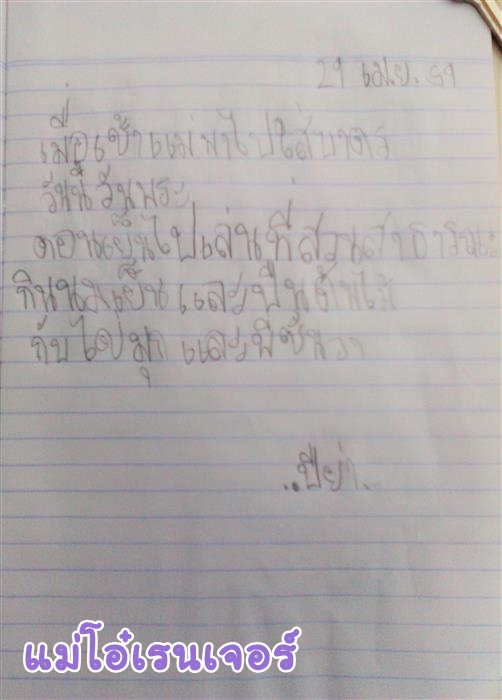 29 เม.ย. 59
เมื่อเช้าแม่พาไปใส่บาตร
วันนี้วันพระ
ตอนเย็นไปเล่นที่สวนสาธารณะ
กินนมเย็นและปีนต้นไม้
กับไข่มุกและพี่ชันวา
..ปีย่า..
แม่โอ๋เรนเจอร์